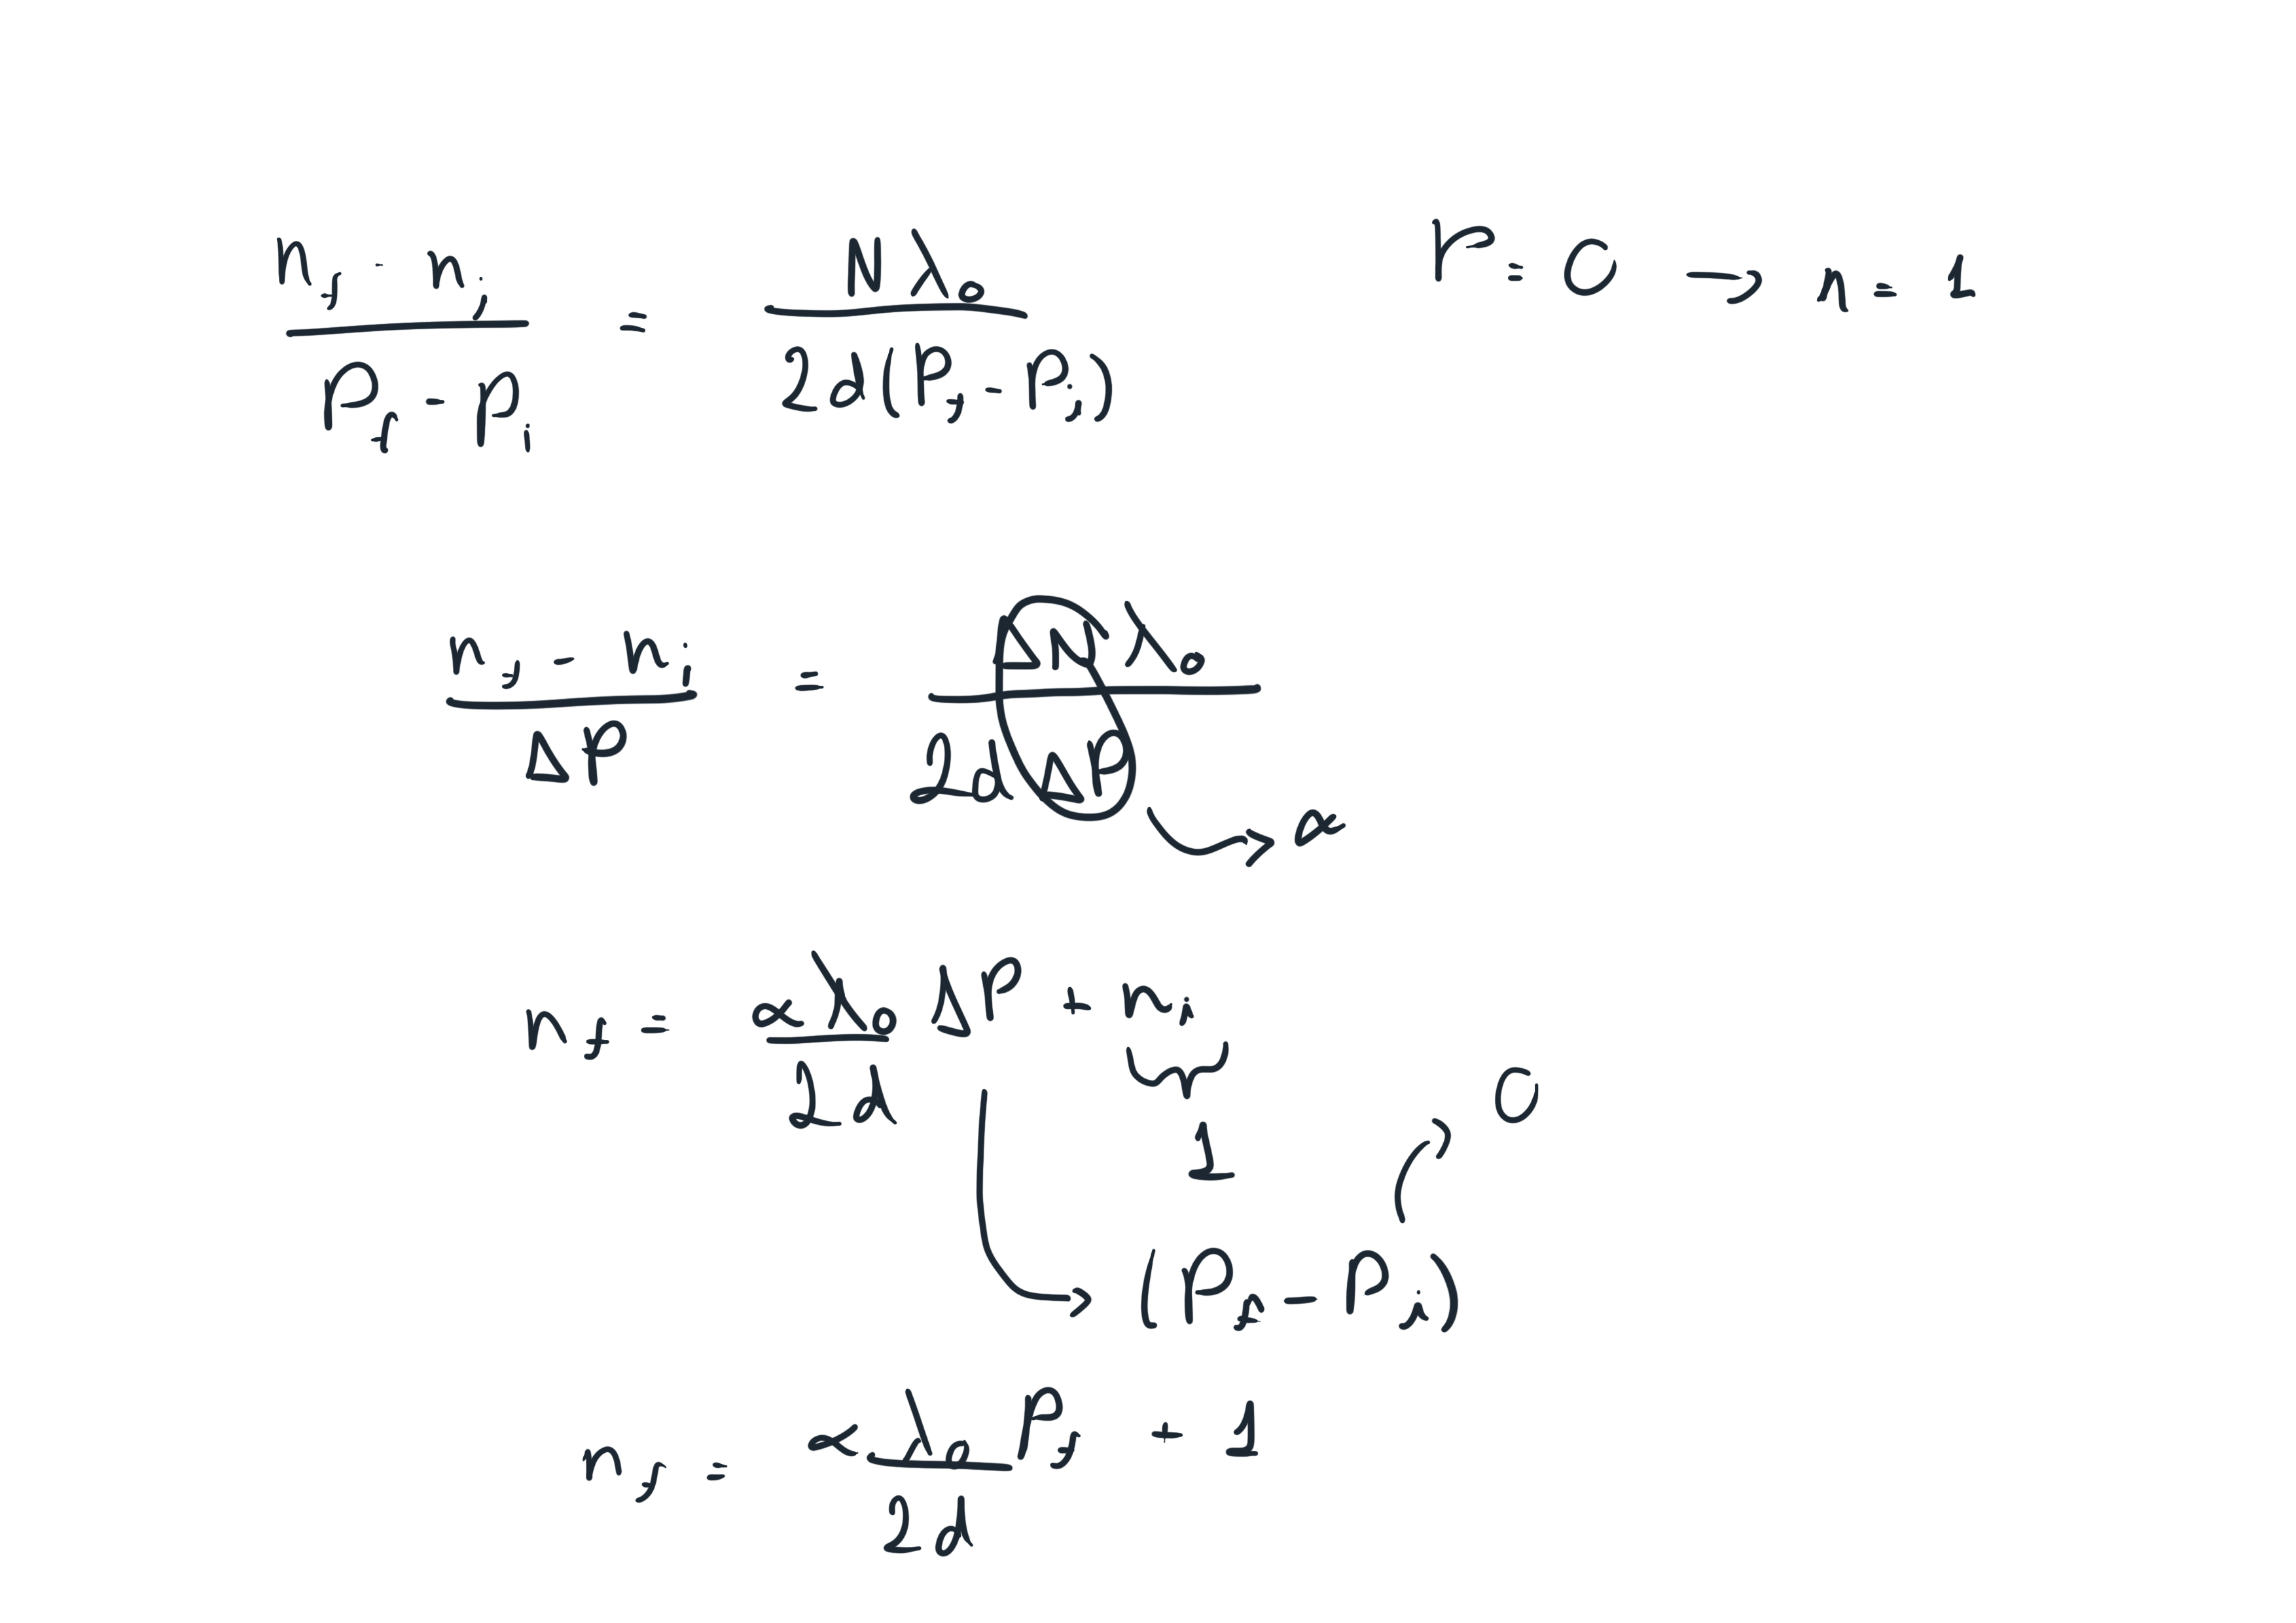 n_f - n_i / P_f - P_i = Nλ₀ / 2d(P_f - P_i)
P = 0 → n = 1
n_f - n_i / ΔP = ΔN λ₀ / 2d ΔP → α
n_f = αλ₀ / 2d ΔP + n_i
1
0
→ (P_f - P_i)
n_f = αλ₀ P_f / 2d + 1